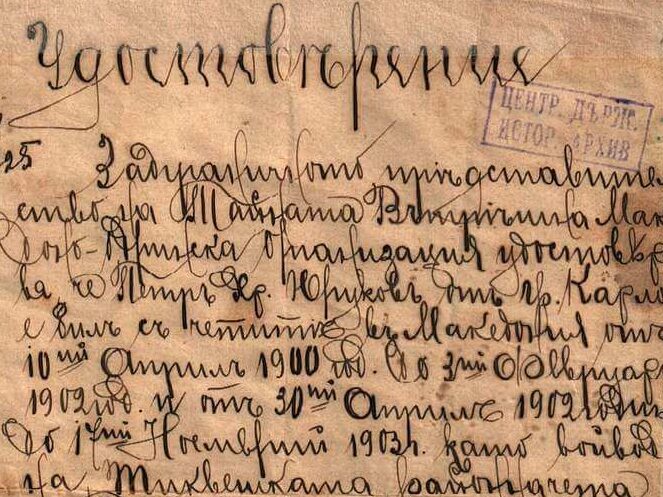 Удостовѣрение
ЦЕНТР. ДЪРЖ.
ИСТОР. АРХИВ
25 Задграничното прѣдставител
ство на Тайната Вѫтрѣшна Мак
Одринска организация удостовѣр
ва че Петръ Хр. Юруковъ отъ гр. Карло
е билъ съ четитѣ въ Македония отъ
10ий Априлъ 1900 год. до 3ий Февруар
1902 год. и отъ 30ий Априлъ 1902 год
до 17ий Ноемврий 1903 г. като войвод
на Тиквешката района чета